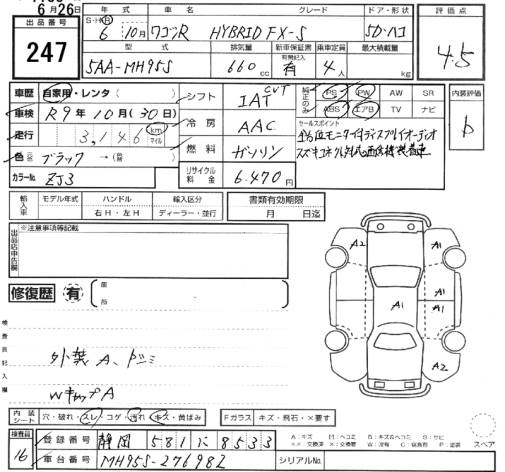 6月26日
出品番号
247
年式 車名 グレード ドア・形状
S・H・R
6年10月 ワゴンR HYBRID FX-S 5D・ハコ
型式 排気量 新車保証書 乗車定員 最大積載量
有無記入
5AA-MH95S 660cc 有 4人 kg
評価点
4.5
車歴 自家用・レンタ( )
車検 R9年10月(30日)
走行 3,146 km マイル
色 ブラック →( )
カラーNo. ZJ3
シフト IAT CVT
冷房 AAC
燃料 ガソリン
リサイクル料金 6,470円
純正のみ
PS PW AW SR
ABS エアB TV ナビ
セールスポイント
内装評価
b
輸入車 モデル年式 ハンドル 輸入区分
右H・左H ディーラー・並行
書類有効期限
月 日迄
出品店申告欄
※注意事項等記載
修復歴 有
箇所
検査員記入欄
外装A、ドミ
WキャップA
A2 A1
A1 A1
A1
A2
内装シート 穴・破れ・スレ・コゲ・汚れ・キズ・歯ばみ
Fガラス キズ・飛石・×要す
検査員
16
登録番号 静岡 581 に 8533
車台番号 MH95S-276982
シリアルNo.
A:キズ M:ヘコミ B:キズ&ヘコミ S:サビ
××:交換済 X:交換要 W:波 C:腐食 P:塗装
スペア